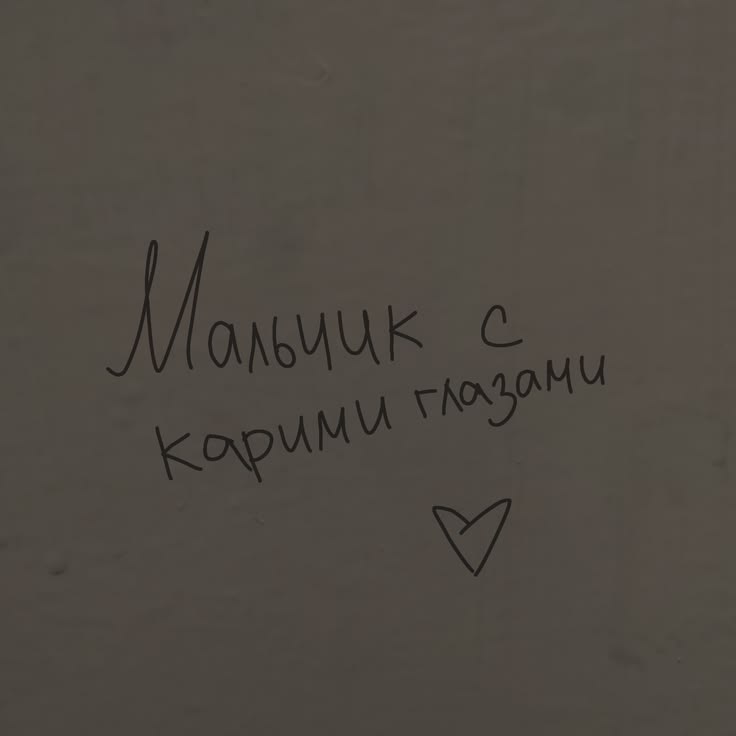 Мальчик с
карими глазами